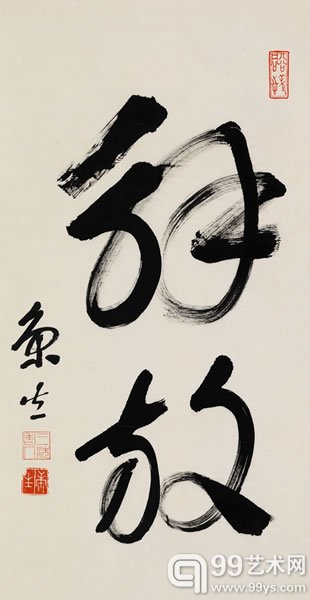 解放
康生
康生
99艺术网
www.99ys.com